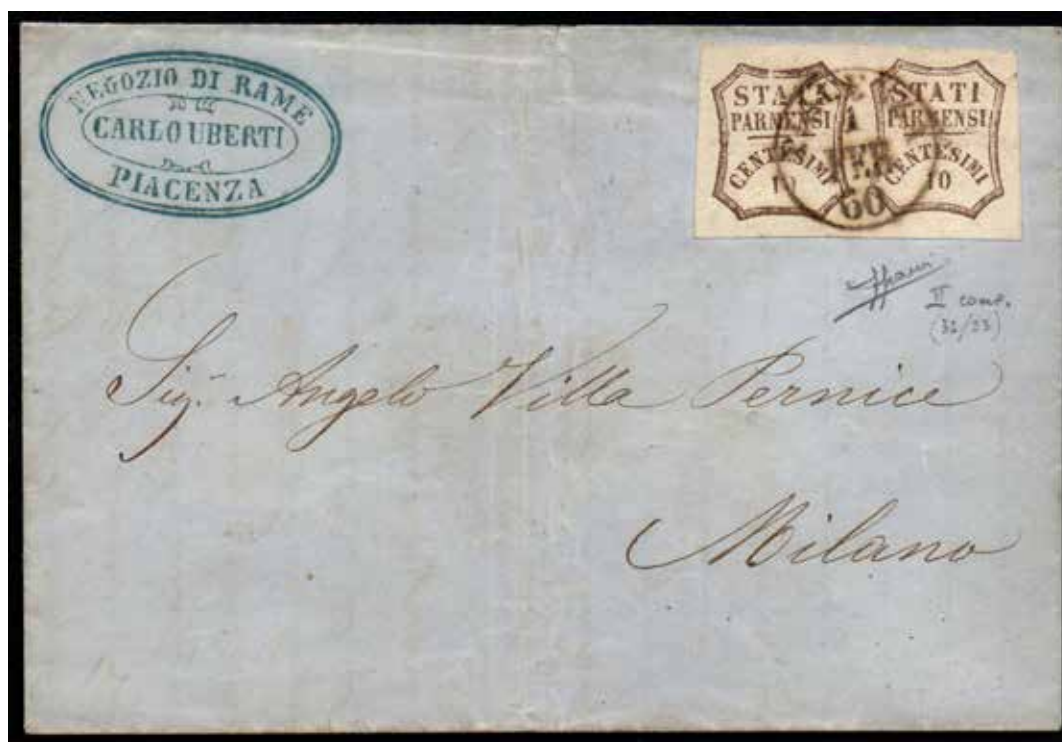 NEGOZIO DI RAME
CARLO UBERTI
PIACENZA
STATI
PARMENSI
CENTESIMI
10
STATI
PARMENSI
CENTESIMI
10
1
60
II comp.
(32/33)
Sig. Angelo Villa Pernice
Milano